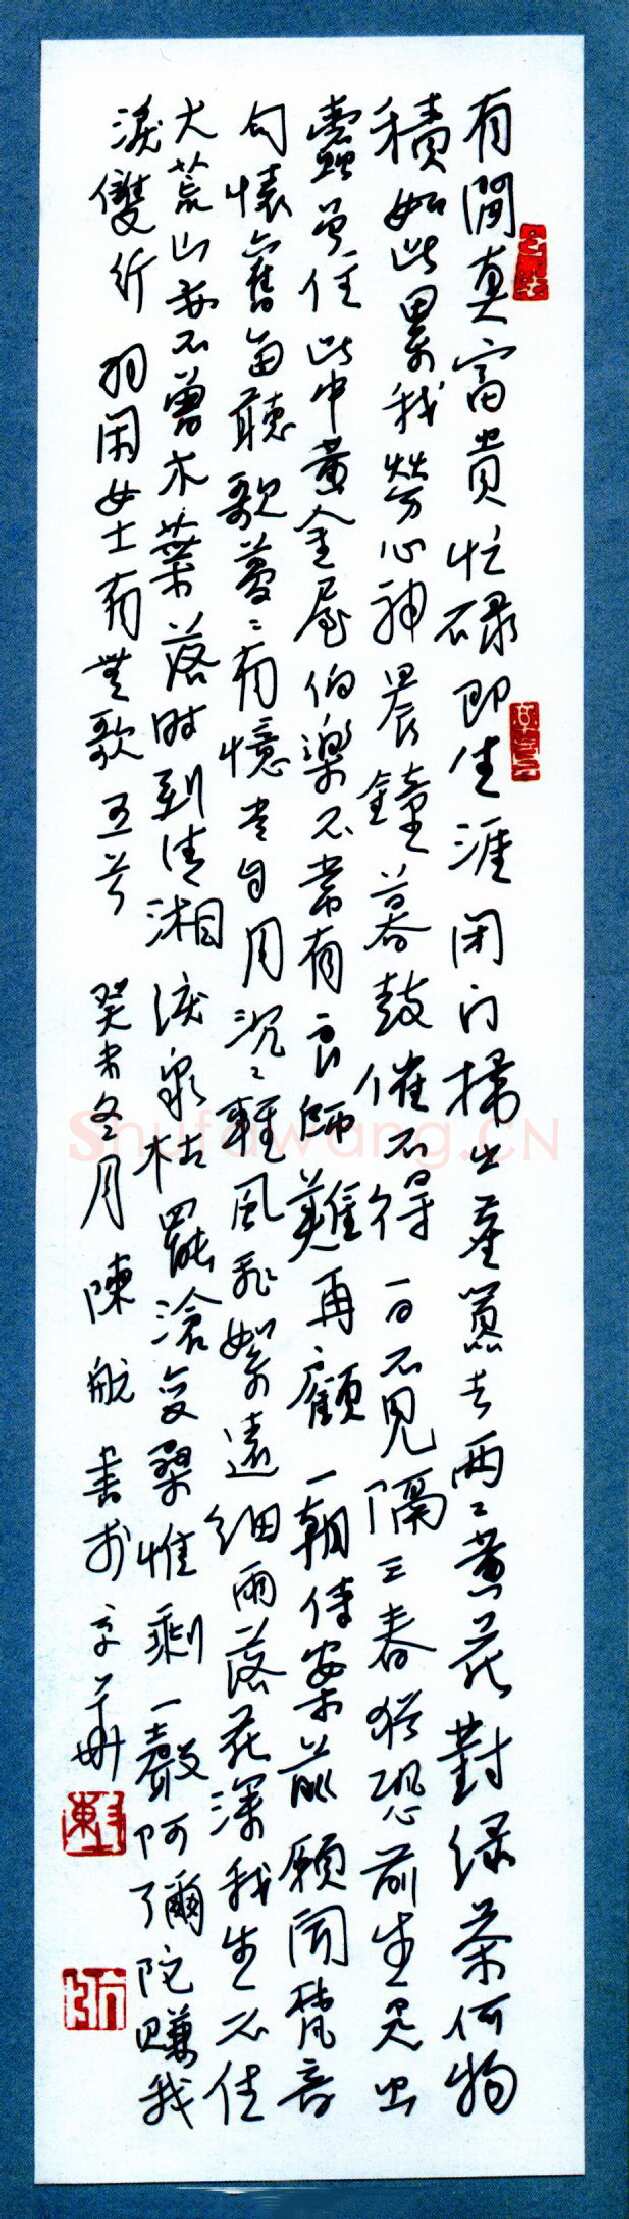 有閒真富貴忙碌即生涯閉門掃出塵囂去兩〻黃花對綠茶何物
積如此累我勞心神晨鐘暮鼓催不得一日不見隔三春猶恐前生是蟲
蠹曾住此中黃金屋伯樂不常有良師難再顧一朝侍案前願聞梵音
句懷舊每聽歌蔓〻有憶昔自月沉〻輕風飛絮遠細雨落花深我生不住
大荒山亦不曾木葉落時到清湘淚泉枯罷滄變桑惟剩一聲阿彌陀賺我
淚雙行 羽閑女士有無歌五首 癸未冬月陳航書於京華
Shufawang.CN